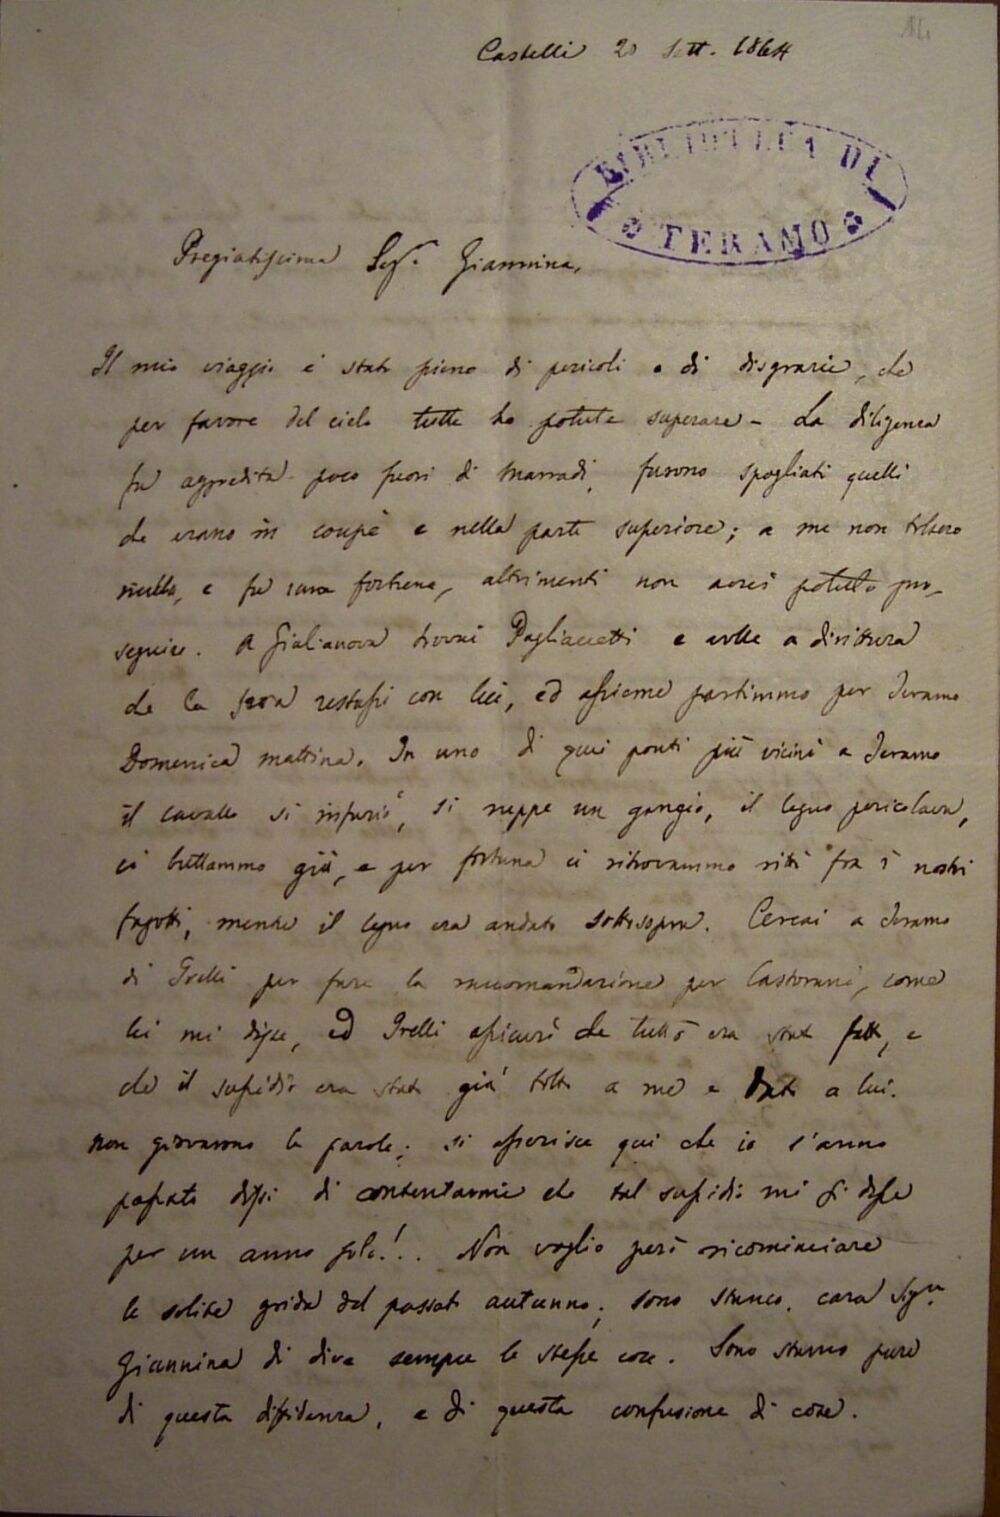 14
Castelli 20 Sett. 1864
BIBLIOTECA DI
TERAMO
Pregiatissima Sigª Giannina,
Il mio viaggio è stato pieno di pericoli e di disgrazie, che
per favore del cielo tutte ho potute superare - La diligenza
fu aggredita poco fuori di Marradi, furono spogliati quelli
che erano in coupè e nella parte superiore; a me non tolsero
nulla, e fu una fortuna, altrimenti non avrei potuto pro-
seguire. A Giulianova trovai Pagliaccetti e volle a dirittura
che la sera restassi con lui, ed assieme partimmo per Teramo
Domenica mattina. In uno di quei ponti più vicini a Teramo
il cavallo si infuriò, si ruppe un gangio, il legno pericolava,
ci buttammo giù, e per fortuna ci ritrovammo ritti fra i nostri
fagotti, mentre il legno era andato sottosopra. Cercai a Teramo
di Irelli per fare la raccomandazione per Castorani, come
lei mi disse, ed Irelli assicurò che tutto era stato fatto, e
che il sussidio era stato già tolto a me e dato a lui.
Non giovarono le parole; si asserisce qui che io l'anno
passato dissi di contentarmi che tal sussidio mi si desse
per un anno solo!.. Non voglio però ricominciare
le solite grida del passato autunno; sono stanco, cara Sigra
Giannina di dire sempre le stesse cose. Sono stanco pure
di questa diffidenza, e di questa confusione di cose.